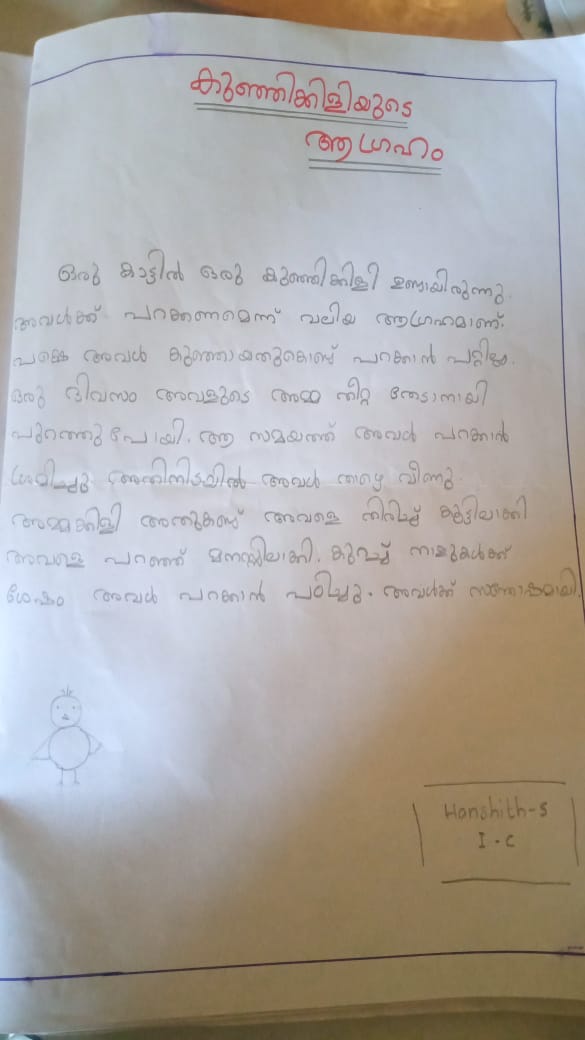 കുഞ്ഞിക്കിളിയുടെ
ആഗ്രഹം
ഒരു കാട്ടിൽ ഒരു കുഞ്ഞിക്കിളി ഉണ്ടായിരുന്നു.
അവൾക്ക് പറക്കണമെന്ന് വലിയ ആഗ്രഹമാണ്.
പക്ഷെ അവൾ കുഞ്ഞായതുകൊണ്ട് പറക്കാൻ പറ്റില്ല.
ഒരു ദിവസം അവളുടെ അമ്മ തീറ്റ തേടാനായി
പുറത്തു പോയി. ആ സമയത്ത് അവൾ പറക്കാൻ
ശ്രമിച്ചു അതിനിടയിൽ അവൾ താഴെ വീണു.
അമ്മക്കിളി അതുകണ്ട് അവളെ തിരിച്ച് കൂട്ടിലാക്കി
അവളെ പറഞ്ഞ് മനസ്സിലാക്കി. കുറച്ച് നാളുകൾക്ക്
ശേഷം അവൾ പറക്കാൻ പഠിച്ചു. അവൾക്ക് സന്തോഷമായി.
Hanshith-S
I-C